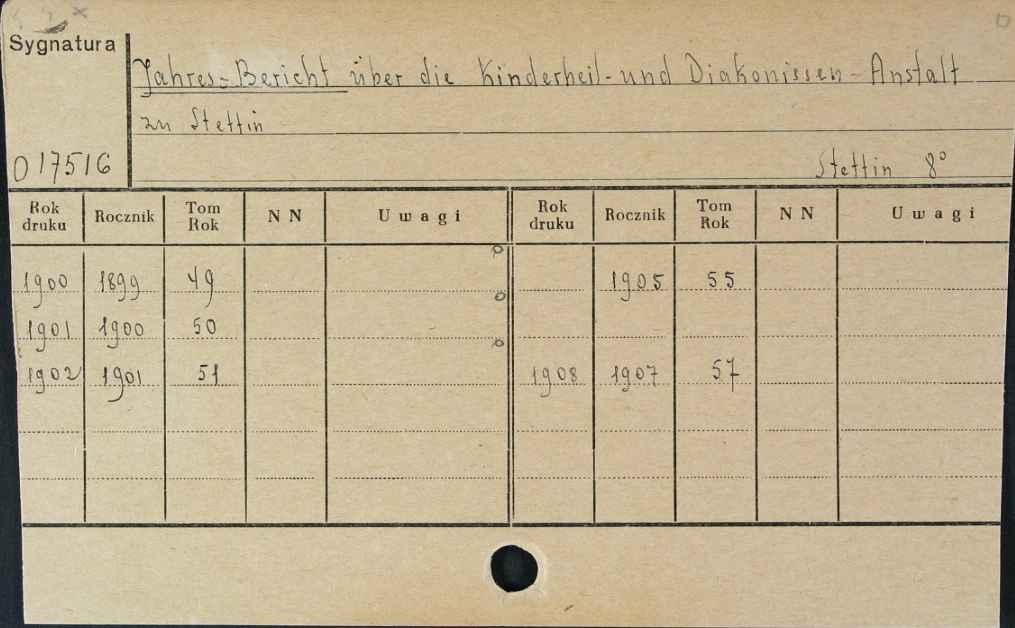 Sygnatura
Jahres-Bericht über die Kinderheil- und Diakonissen-Anstalt
zu Stettin
017516
Stettin 8°
Rok druku Rocznik Tom Rok NN Uwagi Rok druku Rocznik Tom Rok NN Uwagi
1900 1899 49 1905 55
1901 1900 50
1902 1901 51 1908 1907 57